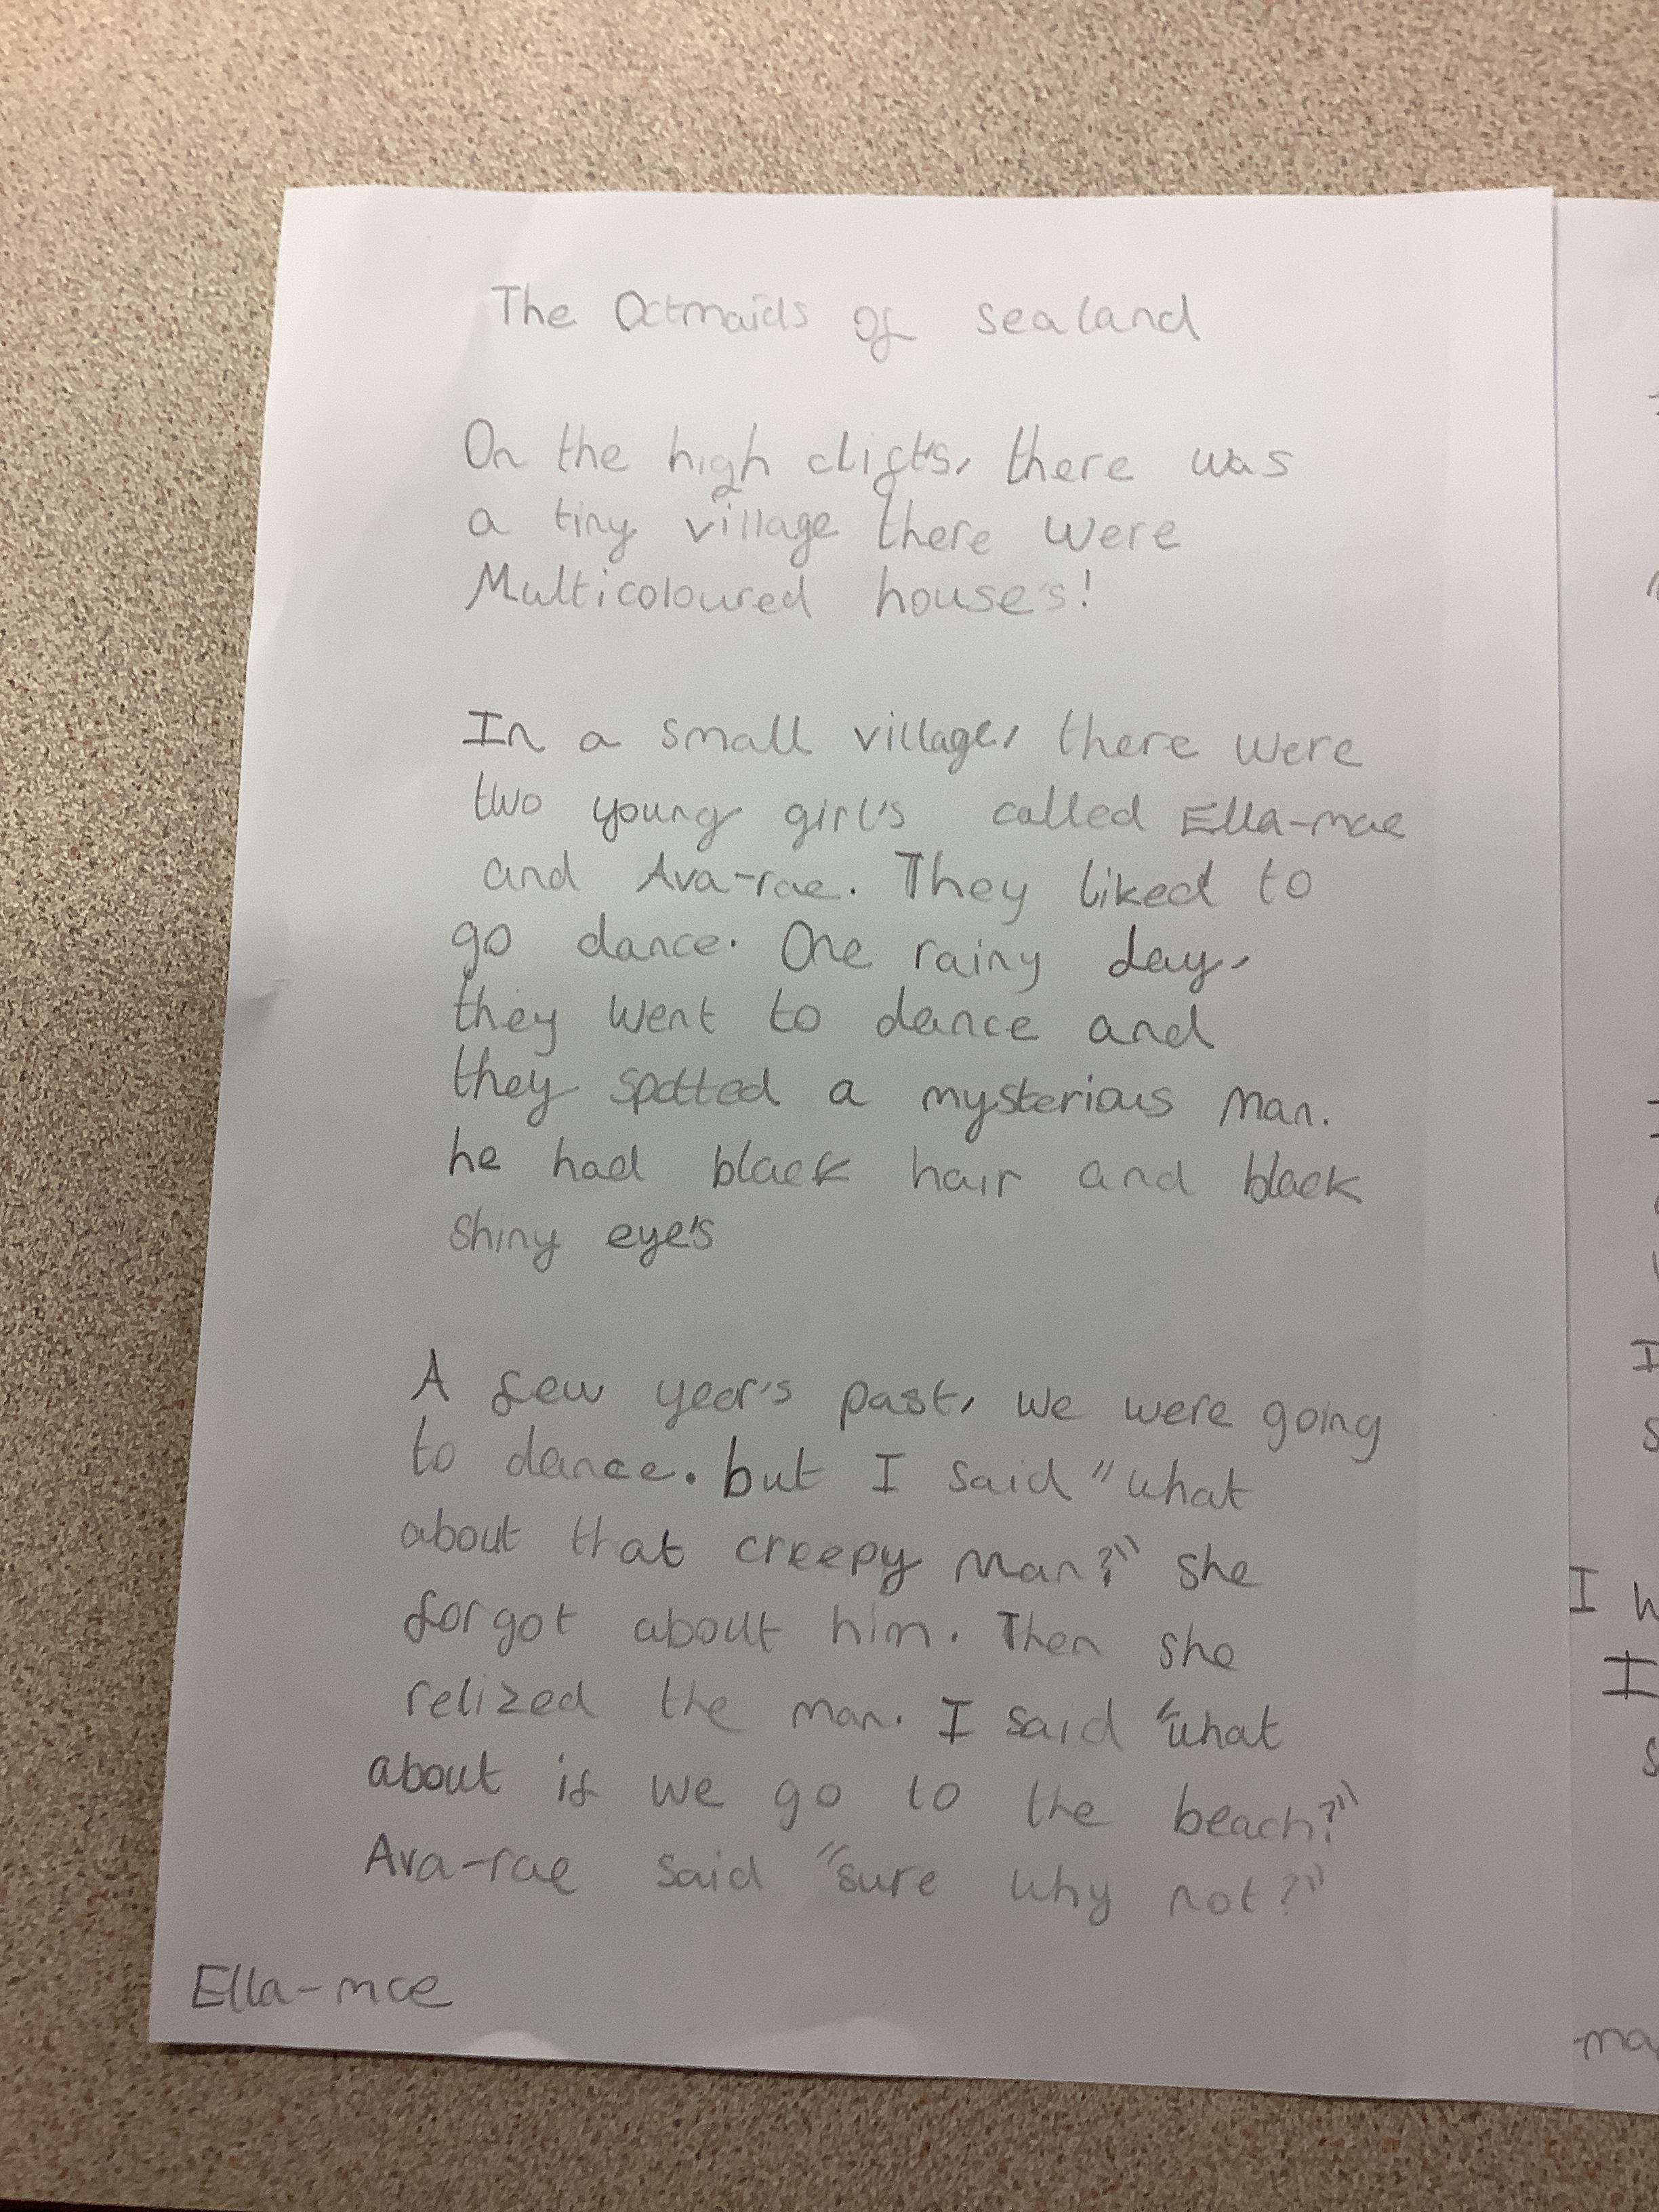 The Octmaids of sealand
On the high clift's, there was
a tiny village there were
Multicoloured house's!
In a small village, there were
two young girl's called Ella-mae
and Ava-rae. They liked to
go dance. One rainy day,
they went to dance and
they spotted a mysterious man.
he had black hair and black
shiny eye's
A few year's past, we were going
to dance. but I said "what
about that creepy man?" she
forgot about him. Then she
relized the man. I said "what
about if we go to the beach?"
Ava-rae said "sure why not?"
Ella-mae